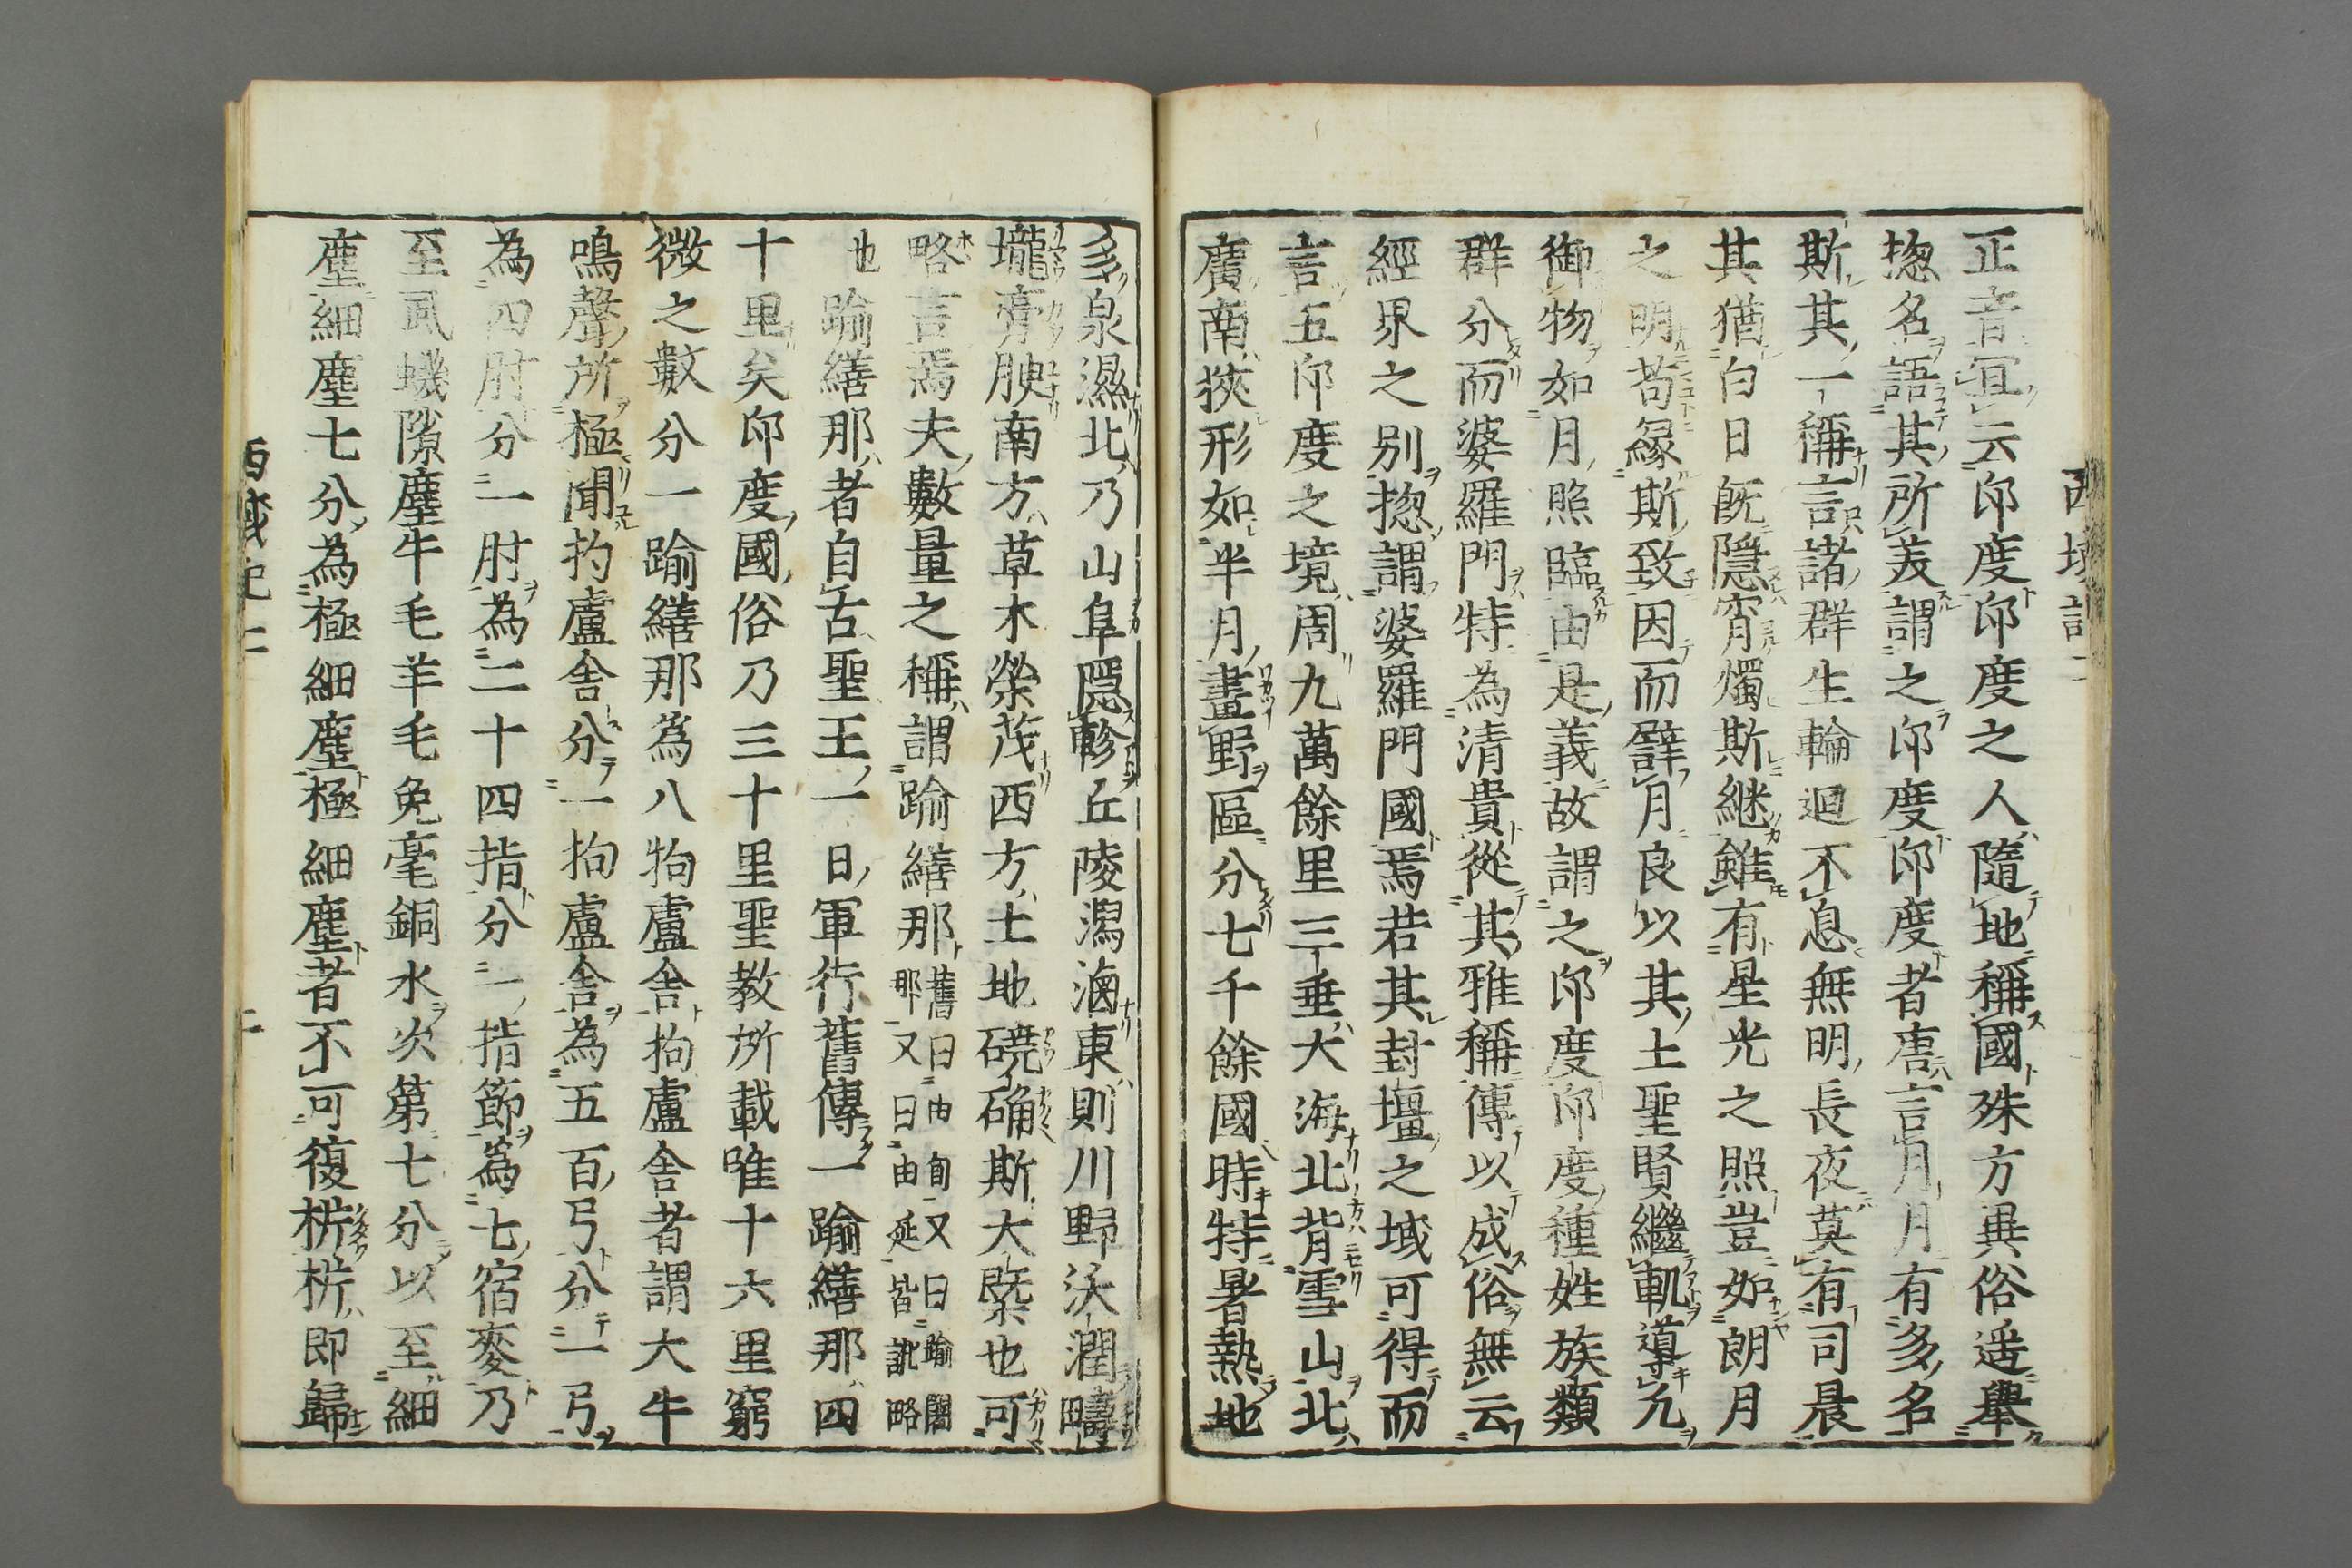 西域記二
正音宜云印度印度之人隨地稱國殊方異俗遥舉
揔名語其所美謂之印度印度者唐言月月有多名
斯其一稱言諸群生輪迴不息無明長夜莫有司晨
其猶白日既隱宵燭斯継雖有星光之照豈如朗月
之明苟緣斯致因而譬月良以其土聖賢繼軌導凡
御物如月照臨由是義故謂之印度印度種姓族類
群分而婆羅門特為清貴從其雅稱傳以成俗無云
經界之別揔謂婆羅門國焉若其封壃之域可得而
言五印度之境周九萬餘里三垂大海北背雪山北
廣南狹形如半月畫野區分七千餘國時特暑熱地
多泉濕北乃山阜隱軫丘陵潟滷東則川野沃潤疇
壠膏腴南方草木榮茂西方土地磽确斯大槩也可
略言焉夫數量之稱謂踰繕那舊曰由旬又曰踰闍那又曰由延皆訛略
也踰繕那者自古聖王一日軍行舊傳一踰繕那四
十里矣印度國俗乃三十里聖教所載唯十六里窮
微之數分一踰繕那為八拘盧舍拘盧舍者謂大牛
鳴聲所極聞扚盧舍分一拘盧舍為五百弓分一弓
為四肘分一肘為二十四指分一指節為七宿麥乃
至虱蟣隙塵牛毛羊毛兔毫銅水次第七分以至細
塵細塵七分為極細塵極細塵者不可復析析即歸
西域記二
二